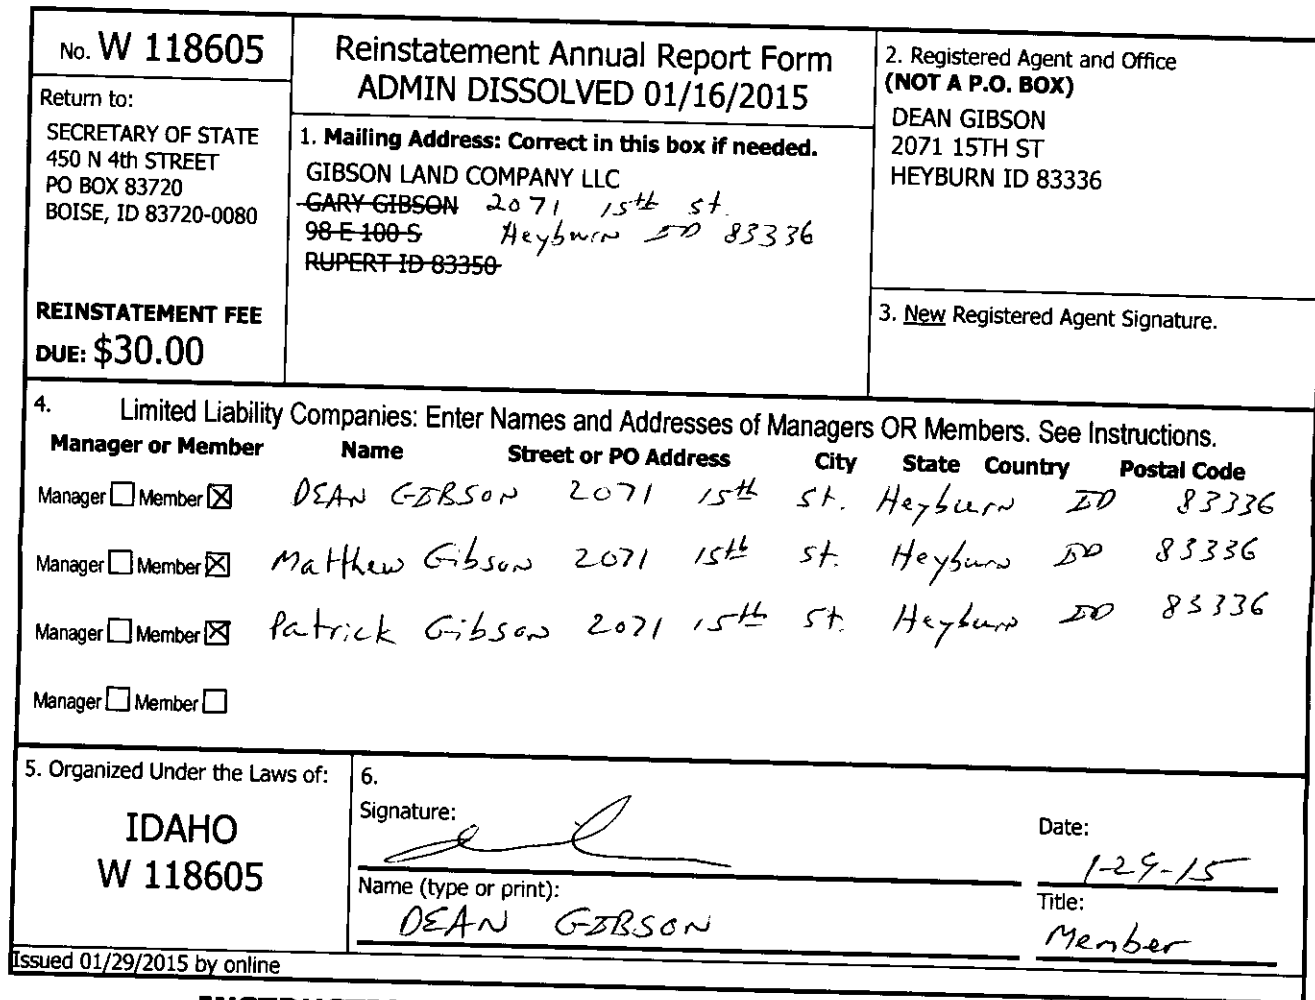 No. W 118605
Return to:
SECRETARY OF STATE
450 N 4th STREET
PO BOX 83720
BOISE, ID 83720-0080
REINSTATEMENT FEE
DUE: $30.00
Reinstatement Annual Report Form
ADMIN DISSOLVED 01/16/2015
1. Mailing Address: Correct in this box if needed.
GIBSON LAND COMPANY LLC
GARY GIBSON 2071 15th st.
98 E 100 S Heyburn ID 83336
RUPERT ID 83350
2. Registered Agent and Office
(NOT A P.O. BOX)
DEAN GIBSON
2071 15TH ST
HEYBURN ID 83336
3. New Registered Agent Signature.
4. Limited Liability Companies: Enter Names and Addresses of Managers OR Members. See Instructions.
Manager or Member Name Street or PO Address City State Country Postal Code
Manager Member DEAN GIBSON 2071 15th St. Heyburn ID 83336
Manager Member Matthew Gibson 2071 15th St. Heyburn ID 83336
Manager Member Patrick Gibson 2071 15th St. Heyburn ID 83336
Manager Member
5. Organized Under the Laws of:
IDAHO
W 118605
6.
Signature:
Date:
1-29-15
Name (type or print):
DEAN GIBSON
Title:
Member
Issued 01/29/2015 by online